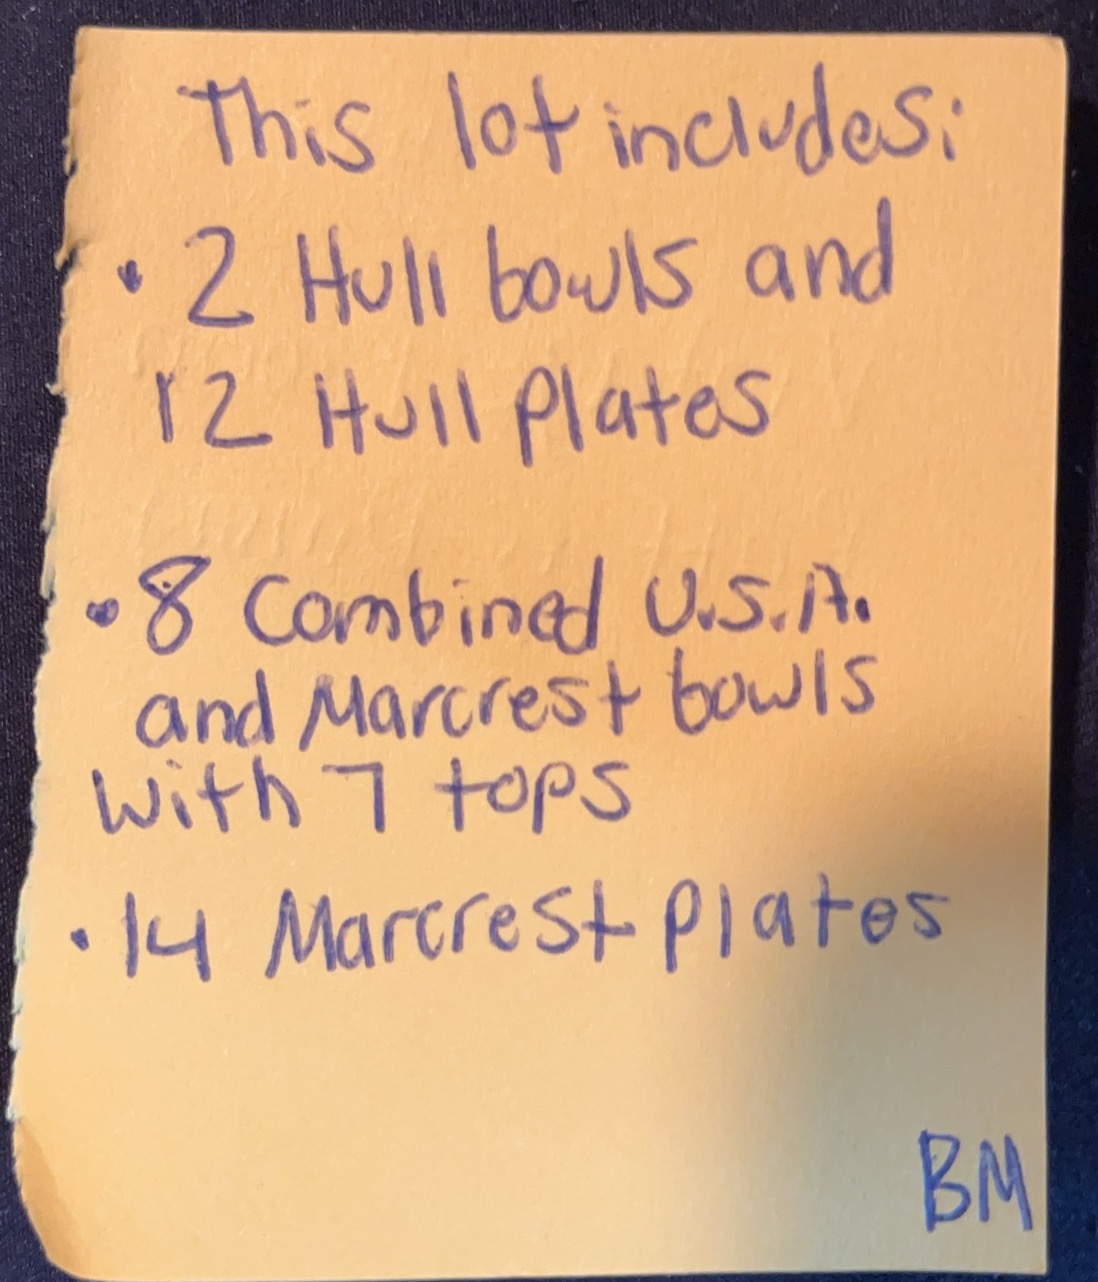 This lot includes:
• 2 Hull bowls and
12 Hull Plates
• 8 Combined U.S.A.
and Marcrest bowls
with 7 tops
• 14 Marcrest plates
BM